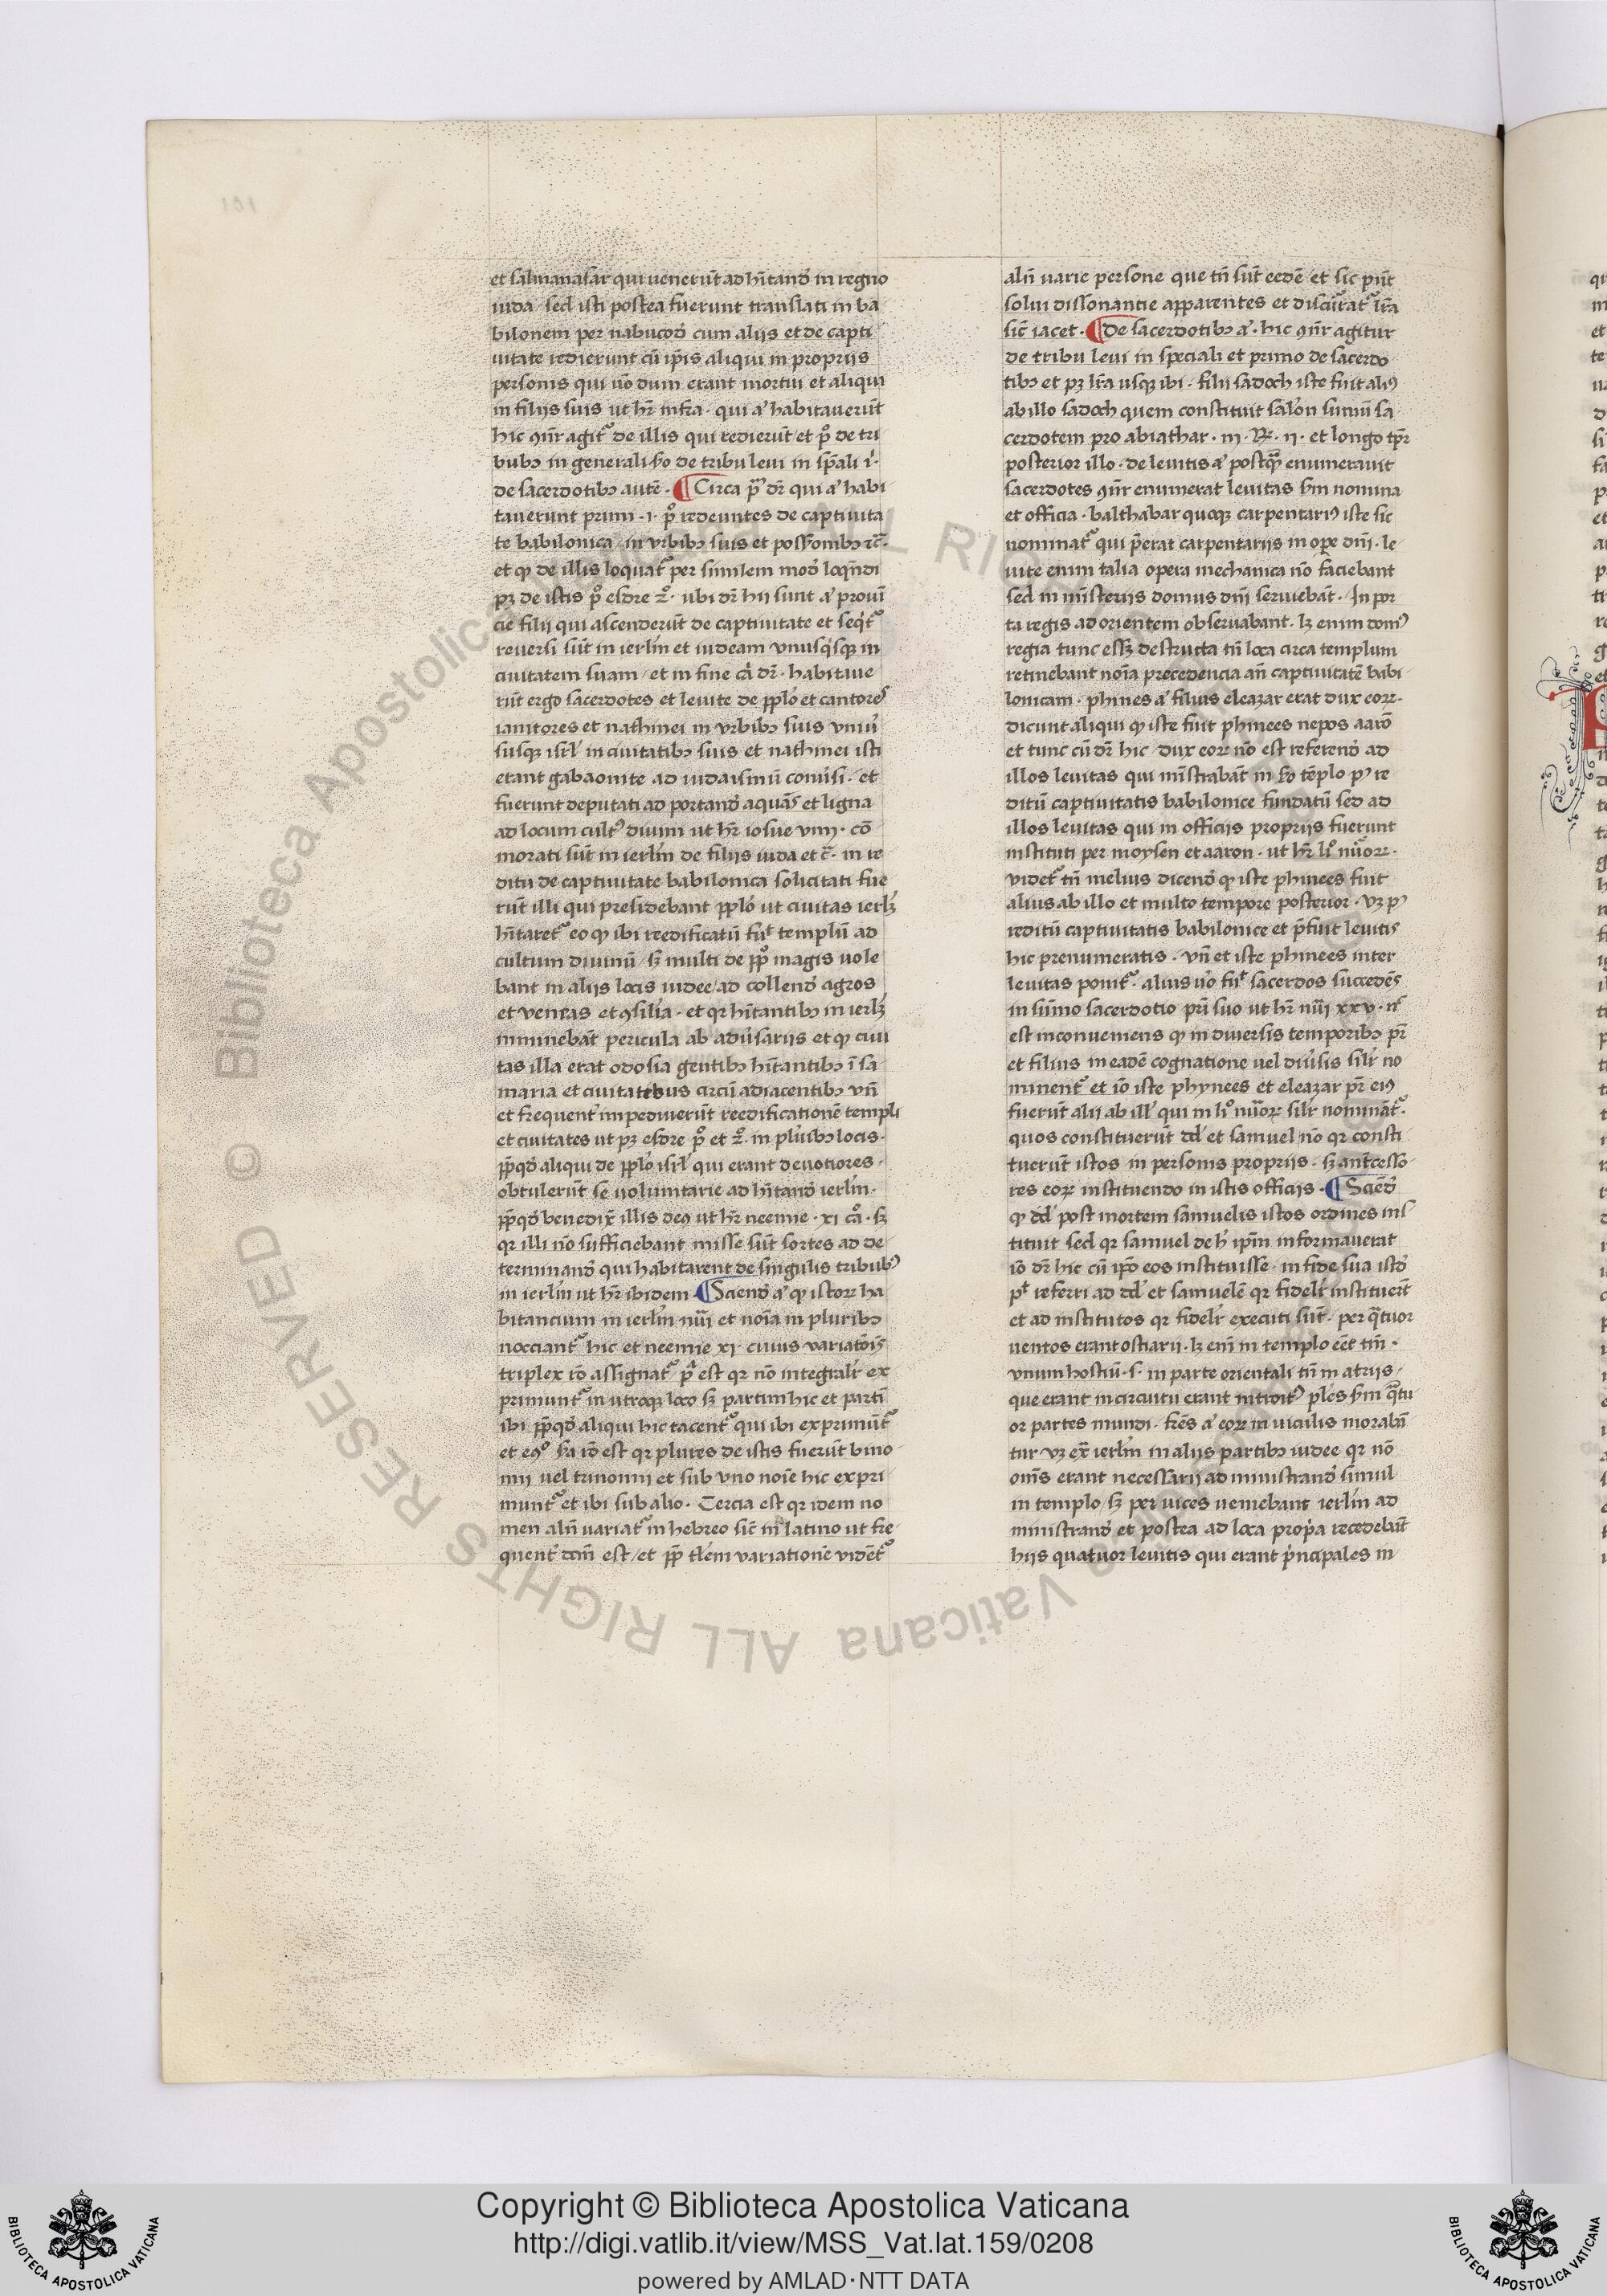 101
et salmanasar qui venerūt ad hītandū in regno
iuda / sed isti postea fuerunt translati in ba
bilonem per nabucod̄ cum aliis et de capti
uitate redierunt cū ip̄is aliqui in propriis
personis qui nōdum erant mortui et aliqui
in filiis suis ut hr̄ infra · qui aͥ habitauerūt
bubꝫ in generali de tribu leui in sp̄ali i ·
de sacerdotibꝫ autē · ¶ Circa dr̄ qui aͥ habi
tauerunt primi · i · redeuntes de captiuita
te babilonica / in vrbibꝫ suis et
et ꝙ de illis loquat᷑ per similem mod̄
pꝫ de istis esdre 2º · ubi dr̄ hii sunt aͥ prouī
cie filii qui ascenderūt de captiuitate et
reuersi sūt in ierlm̄ et iudeam vnusqͥsqꝫ in
ciuitatem suam / et in fine dr̄ · habitaue
rūt ergo sacerdotes et leuite de pp̄lo et cantores
ianitores et nathinei in vrbibꝫ suis
susqꝫ isrl̄ in ciuitatibꝫ suis et nathinei isti
erant gabaonite ad iudaismū · et
fuerunt deputati ad portand̄ aquās et ligna
ad locum cultꝰ diuini ut hr̄ iosue viiij · cō
morati sūt in ierlm̄ de filiis iuda et c̄ · in re
ditu de captiuitate babilonica solicitati fue
rūt illi qui presidebant pp̄lo ut ciuitas
hītaret᷑ eo ꝙ ibi reedificatū templū ad
cultum diuinū / sꝫ multi de magis uole
bant in aliis locis iudee ad collend̄ agros
et et · et qr hītantibꝫ in
iminebāt pericula ab adūsariis et ꝙ ciui
tas illa erat odosia gentibꝫ hītantibꝫ ī sa
maria et ciuitatibus circū adiacentibꝫ vn̄
et frequent᷑ impedierūt reedificationē templi
et ciuitates ut pꝫ esdre pº et 2º · in plūibꝫ locis ·
aliqui de pp̄lo isrl̄ qui erant deuotiores ·
obtulerūt se voluntarie ad hītand̄ ierlm̄ ·
benedix̄ illis ut hr̄ neemie · xi · sꝫ
qr illi nō sufficiebant misse sūt sortes ad de
terminand̄ qui habitarent de singulis tribubꝰ
in ierlm̄ ut hr̄ ibidem · ¶ Sciend̄ aͥ ꝙ istoꝝ ha
bitancium in ierlm̄ et noīa in pluribꝫ
hic et neemie xi · cuius
triplex rō assignat᷑ / est qr nō integralr̄ ex
primunt᷑ in utroqꝫ loco sꝫ partim hic et partī
ibi aliqui hic tacent᷑ qui ibi exprimūt᷑
et rō est qr plures de istis fuerūt bino
mii uel trinomii et sub vno noīe hic expri
munt᷑ et ibi sub alio · Tercia est qr idem no
men aln̄ variat᷑ in hebreo sic̄ in latino ut fre
quent᷑ est / et variationē vidēt᷑
aln̄ varie persone que tn̄ sūt eedē et sic
solui dissonantie apparentes et
sic̄ iacet · ¶ De sacerdotibꝫ aͥ · hic agitur
de tribu leui in speciali et primo de sacerdo
tibꝫ et pꝫ lr̄a usqꝫ ibi · filii sadoch iste fuit aliꝰ
ab illo sadoch quem constituit sūmū sa
cerdotem pro abiathar · iii · · ii · et longo tpr̄
posterior illo · de leuitis aͥ enumerauit
sacerdotes enumerat leuitas nomina
et officia · balthabar quoqꝫ carpentariꝰ iste sic
nominat᷑ qui p̄erat carpentariis in ope dn̄i · le
uite enim talia opera mechanica nō faciebant
sed in mīsteriis domus dn̄i seruiebāt · In por
ta regis ad orientem obseruabant · lꝫ enim domꝰ
regia tunc essꝫ destructa tn̄ loca circa templum
retinebant noīa precedencia an̄ captiuitatē babi
lonicam · phinees aͥ filius eleazar erat dux eoꝝ ·
dicunt aliqui ꝙ iste fuit phinees nepos aarō
et tunc cū dr̄ hic / dux eoꝝ nō est referend̄ ad
illos leuitas qui mīstrabāt in tēplo pꝰ re
ditū captiuitatis babilonice fundatū sed ad
illos leuitas qui in officiis propriis fuerunt
instituti per moysen et aaron · ut hr̄ liº nūoꝝ ·
videt᷑ tn̄ melius dicend̄ ꝙ iste phinees fuit
alius ab illo et multo tempore posterior · vꝫ pꝰ
reditū captiuitatis babilonice et p̄fuit leuitis
hic prenumeratis · vn̄ et iste phinees inter
leuitas ponit᷑ · alius sacerdos succedēs
in sūmo sacerdotio pr̄i suo ut hr̄ nūi xxv ·
est inconueniens ꝙ in diuersis temporibꝫ pr̄
et filius in eadē cognatione uel diūsis silr̄ no
minent᷑ et iō iste phynees et eleazar pr̄ eiꝰ
fuerūt alii ab ill̄ qui in liº nūoꝝ silr̄ nominat᷑ ·
quos constituerūt dd̄ et samuel nō qr consti
tuerūt istos in personis propriis · sꝫ antecesso
res eoꝝ instituendo in istis officiis · ¶ Sciēd̄
ꝙ dd̄ post mortem samuelis istos ordines ins
tituit sed qr samuel de ip̄m informauerat
iō dr̄ hic cū ip̄o eos instituisse · in fide sua istd̄
pᵗ referri ad dd̄ et samuelē qr fidelr̄ instituerūt
et ad institutos qr fidelr̄ executi sūt · per qͣtuor
uentos erant ostiarii · lꝫ enī in templo eēt tm̄ ·
vnum hostiū · s · in parte orientali tn̄ in atriis ·
que erant in circuitu erant introitꝰ qͣtu
or partes mundi · frēs aͥ eoꝝ in viculis morabā
tur · vꝫ ex̄ ierlm̄ in aliis partibꝫ iudee qr nō
om̄s erant necessarii ad ministrand̄ simul
in templo / sꝫ per uices veniebant ierlm̄ ad
ministrand̄ et postea ad loca propͥa recedebāt
hiis quatuor leuitis qui erant pͥncipales in
Copyright © Biblioteca Apostolica Vaticana
http://digi.vatlib.it/view/MSS_Vat.lat.159/0208
powered by AMLAD·NTT DATA
BIBLIOTECA APOSTOLICA VATICANA
BIBLIOTECA APOSTOLICA VATICANA
© Biblioteca Apostolica Vaticana ALL RIGHTS RESERVED